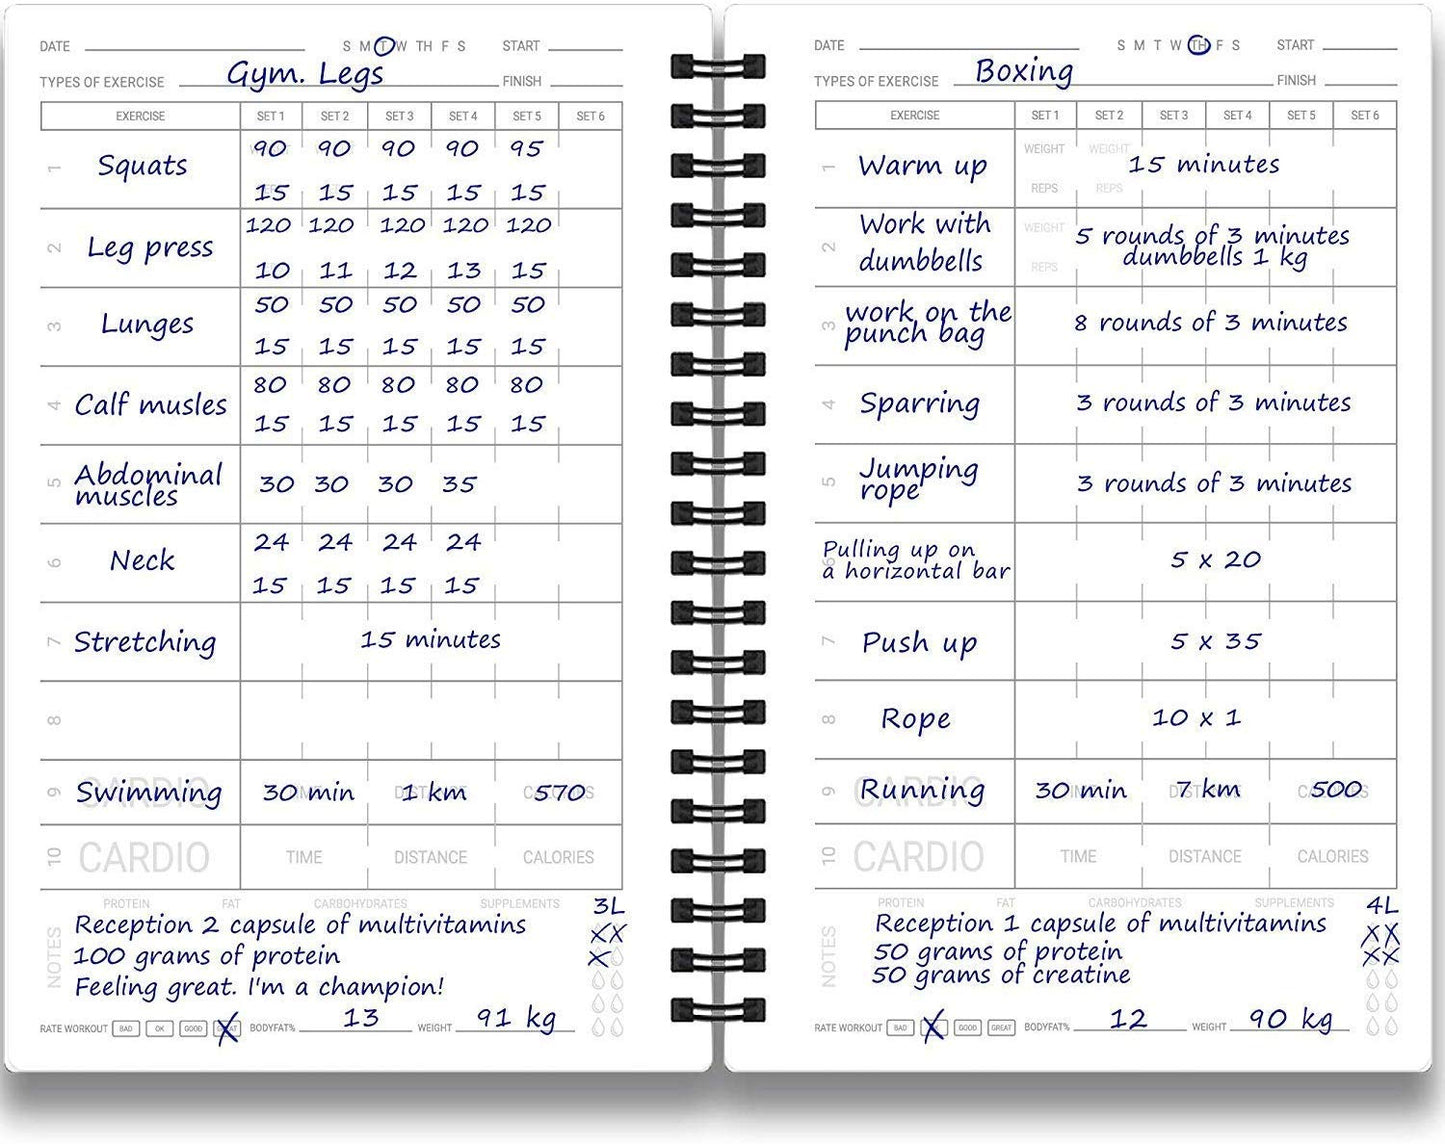 DATE S M T W TH F S START
TYPES OF EXERCISE Gym. Legs FINISH
EXERCISE SET 1 SET 2 SET 3 SET 4 SET 5 SET 6
1 Squats 90 90 90 90 95
15 15 15 15 15
2 Leg press 120 120 120 120 120
10 11 12 13 15
3 Lunges 50 50 50 50 50
15 15 15 15 15
4 Calf musles 80 80 80 80 80
15 15 15 15 15
5 Abdominal
muscles 30 30 30 35
6 Neck 24 24 24 24
15 15 15 15
7 Stretching 15 minutes
8
9 CARDIO Swimming 30 min 1 km 570
10 CARDIO TIME DISTANCE CALORIES
PROTEIN FAT CARBOHYDRATES SUPPLEMENTS 3L
NOTES
Reception 2 capsule of multivitamins XX
100 grams of protein X
Feeling great. I'm a champion!
RATE WORKOUT BAD OK GOOD X BODYFAT% 13 WEIGHT 91 kg
DATE S M T W TH F S START
TYPES OF EXERCISE Boxing FINISH
EXERCISE SET 1 SET 2 SET 3 SET 4 SET 5 SET 6
1 Warm up WEIGHT WEIGHT 15 minutes
REPS REPS
2 Work with
dumbbells WEIGHT 5 rounds of 3 minutes
REPS dumbbells 1 kg
3 work on the
punch bag 8 rounds of 3 minutes
4 Sparring 3 rounds of 3 minutes
5 Jumping
rope 3 rounds of 3 minutes
6 Pulling up on
a horizontal bar 5 x 20
7 Push up 5 x 35
8 Rope 10 x 1
9 CARDIO Running 30 min 7 km 500
10 CARDIO TIME DISTANCE CALORIES
PROTEIN FAT CARBOHYDRATES SUPPLEMENTS 4L
NOTES
Reception 1 capsule of multivitamins XX
50 grams of protein XX
50 grams of creatine
RATE WORKOUT BAD X GOOD GREAT BODYFAT% 12 WEIGHT 90 kg